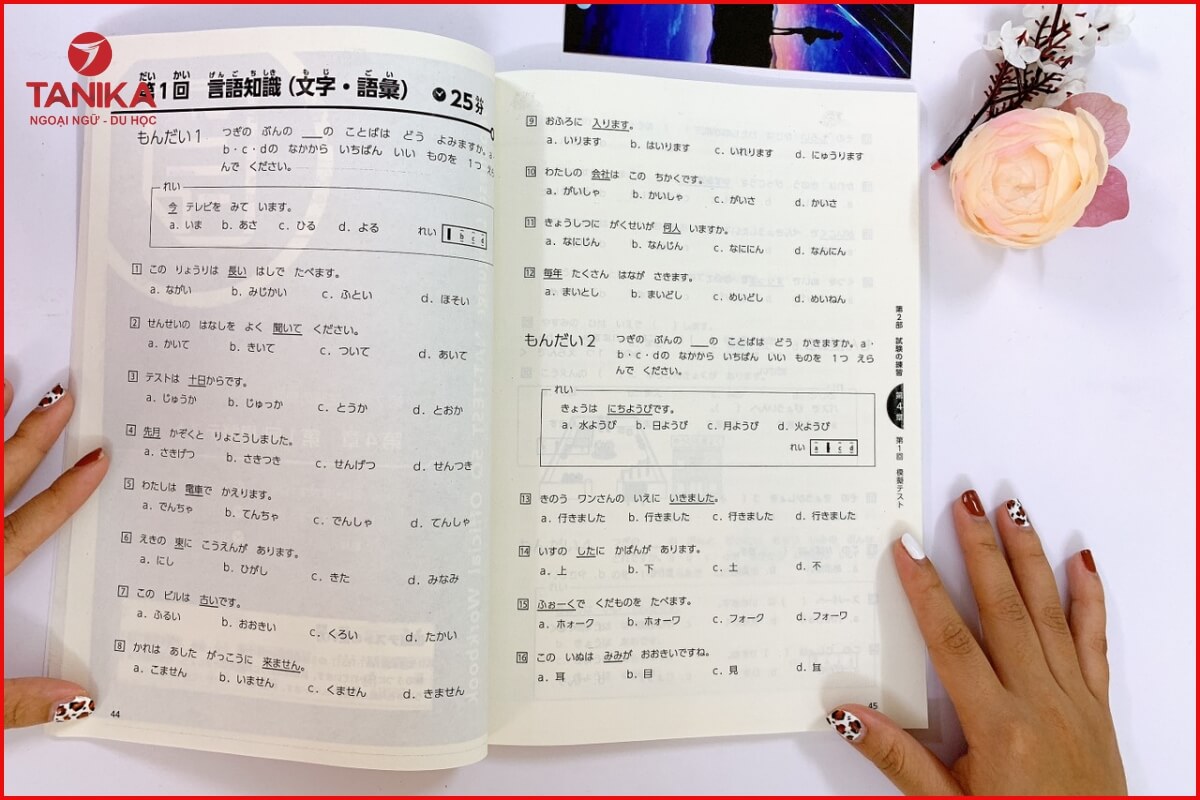 TANIKA
NGOẠI NGỮ - DU HỌC
だい かい げんごちしき もじ ごい
第1回 言語知識(文字・語彙) 25分
もんだい1 つぎの ぶんの ___の ことばは どう よみますか。a・
b・c・dの なかから いちばん いい ものを 1つ えら
んで ください。
れい
今 テレビを みて います。
a. いま b. あさ c. ひる d. よる れい b c d
1 この りょうりは 長い はしで たべます。
a. ながい b. みじかい c. ふとい d. ほそい
2 せんせいの はなしを よく 聞いて ください。
a. かいて b. きいて c. ついて d. あいて
3 テストは 十日からです。
a. じゅうか b. じゅっか c. とうか d. とおか
4 先月 かぞくと りょこうしました。
a. さきげつ b. さきつき c. せんげつ d. せんつき
5 わたしは 電車で かえります。
a. でんちゃ b. てんちゃ c. でんしゃ d. てんしゃ
6 えきの 東に こうえんが あります。
a. にし b. ひがし c. きた d. みなみ
7 この ビルは 古いです。
a. ふるい b. おおきい c. くろい d. たかい
8 かれは あした がっこうに 来ません。
a. こません b. いません c. くません d. きません
44
9 おふろに 入ります。
a. いります b. はいります c. いれります d. にゅうります
10 わたしの 会社は この ちかくです。
a. がいしゃ b. かいしゃ c. がいさ d. かいさ
11 きょうしつに がくせいが 何人 いますか。
a. なにじん b. なんじん c. なににん d. なんにん
12 毎年 たくさん はなが さきます。
a. まいとし b. まいどし c. めいどし d. めいねん
もんだい2 つぎの ぶんの ___の ことばは どう かきますか。a・
b・c・dの なかから いちばん いい ものを 1つ えら
んで ください。
れい
きょうは にちようびです。
a. 水ようび b. 日ようび c. 月ようび d. 火ようび
れい a c d
13 きのう ワンさんの いえに いきました。
a. 行きました b. 行きました c. 行きました d. 行きました
14 いすの したに かばんが あります。
a. 上 b. 下 c. 土 d. 不
15 ふぉーくで くだものを たべます。
a. ホォーク b. ホォーワ c. フォーク d. フォーワ
16 この いぬは みみが おおきいですね。
a. 耳 b. 目 c. 見
45
第2部 試験の練習
第4章
第1回 模擬テスト